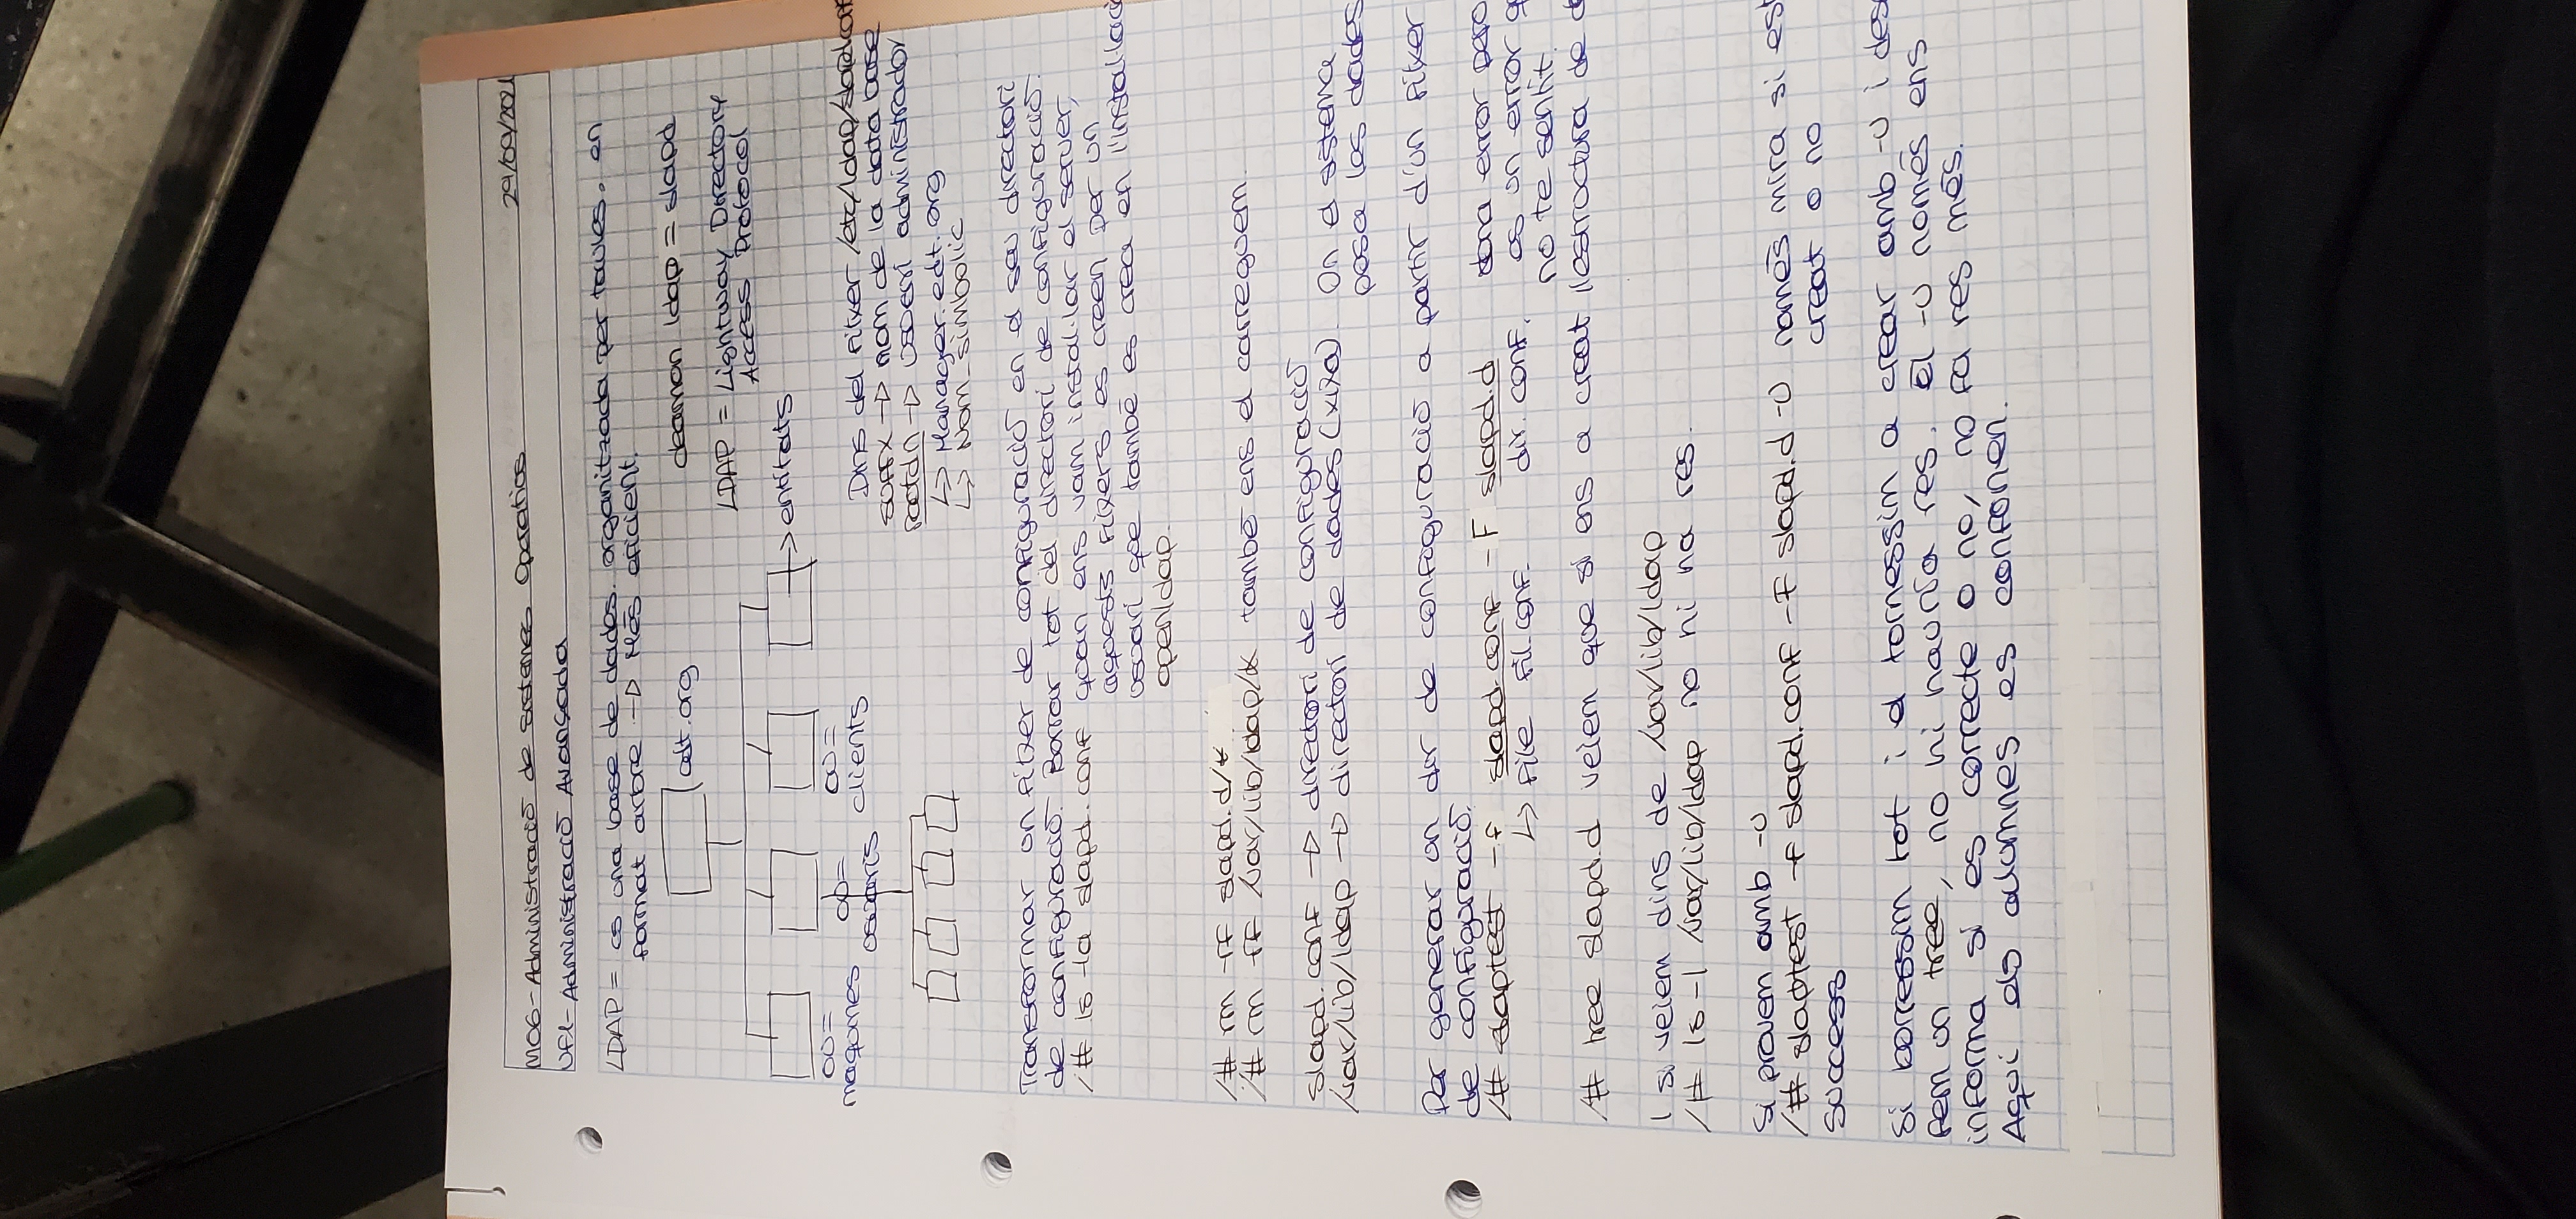 M06-Administració de Sistemes Operatius
29/09/2021
UF1-Administració Avançada
LDAP = és una base de dades. organitzada per taules. en
format arbre → Més eficient.
edt.org
deamon ldap = slapd
LDAP = Lightway Directory
Access Protocol
→ entitats
ou=
maquines
ou=
usuaris
ou=
clients
Dins del fitxer /etc/ldap/slapd.conf
suffx → nom de la data base
rootdn → usuari administrador
↳ Manager.edt.org
↳ Nom_simbolic
Transformar un fitxer de configuració en el seu directori
de configuració. Borrar tot del directori de configuració.
/# ls -la slapd.conf quan ens vam instal.lar el server,
aquests fixers es creen per un
usuari que també es crea en l'instal.lació
openldap.
/# rm -rf slapd.d/*
/# rm rf /var/lib/ldap/* també ens el carreguem.
slapd.conf → directori de configuració
/var/lib/ldap → directori de dades (xixa). On el sistema
posa les dades
Per generar un dir de configuració a partir d'un fitxer
de configuració.
/# slaptest -f slapd.conf -F slapd.d dona error pero
↳ file fil.conf. dir. conf. es un error q
no te sentit.
/# tree slapd.d veiem que si ens a creat l'estructura de
I si veiem dins de /var/lib/ldap
/# ls -l /var/lib/ldap no hi ha res.
Si provem amb -u
/# slaptest -f slapd.conf -F slapd.d -u només mira si est
creat o no
success
Si borressim tot i el tornessim a crear amb -u i des
fem un tree, no hi hauria res. El -u només ens
informa si es correcte o no, no fa res més.
Aqui els alumnes es confonen.